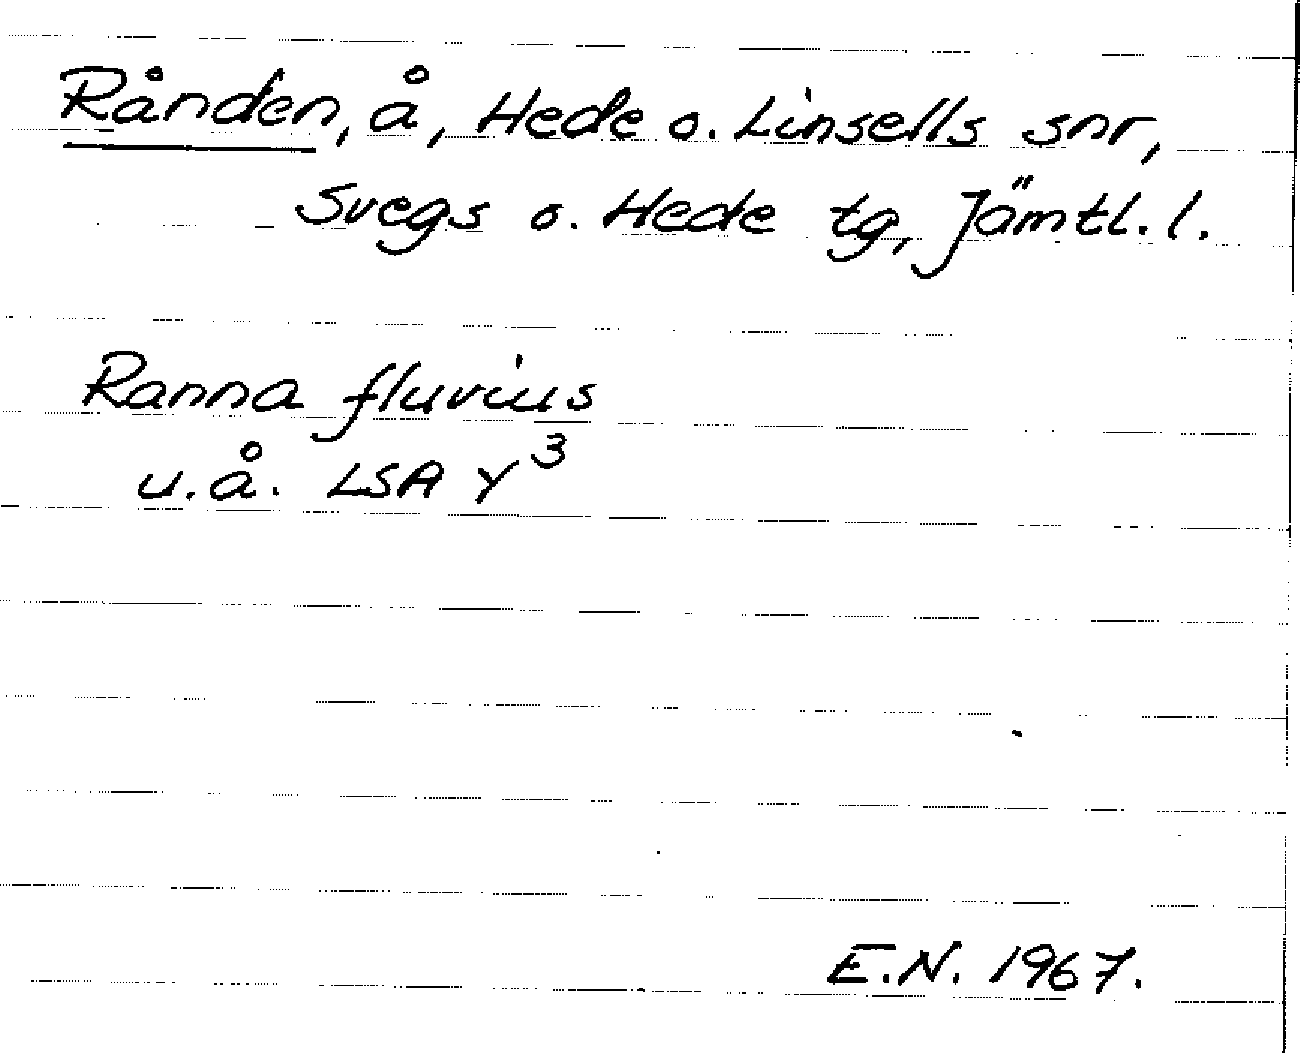 Rånden, å, Hede o. Linsells snr,
Svegs o. Hede tg, Jämtl. l.
Ranna fluvius
u.å. LSA Y³
E.N. 1967.